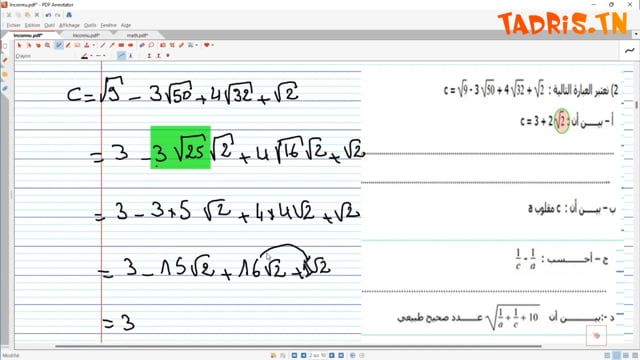 Inconnu.pdf* - PDF Annotator
TADRIS.TN
Fichier Edition
Inconnu.pdf* Inconnu.pdf* math.pdf*
Crayon
C = √9 - 3√50 + 4√32 + √2
= 3 - 3√25 √2 + 4√16 √2 + √2
= 3 - 3×5 √2 + 4×4√2 + √2
= 3 - 15√2 + 16√2 + 1√2
= 3
2) نعتبر العبارة التالية : c = √9 - 3 √50 + 4 √32 + √2
أ – بيــــن أن : c = 3 + 2 √2
ب – بيــن أن : c مقلوب a
ج – أحـــسب : 1/c - 1/a
د -: بيــــن أن √(1/a + 1/c + 10) عــدد صحيح طبيعي
Modifié
2 sur 10